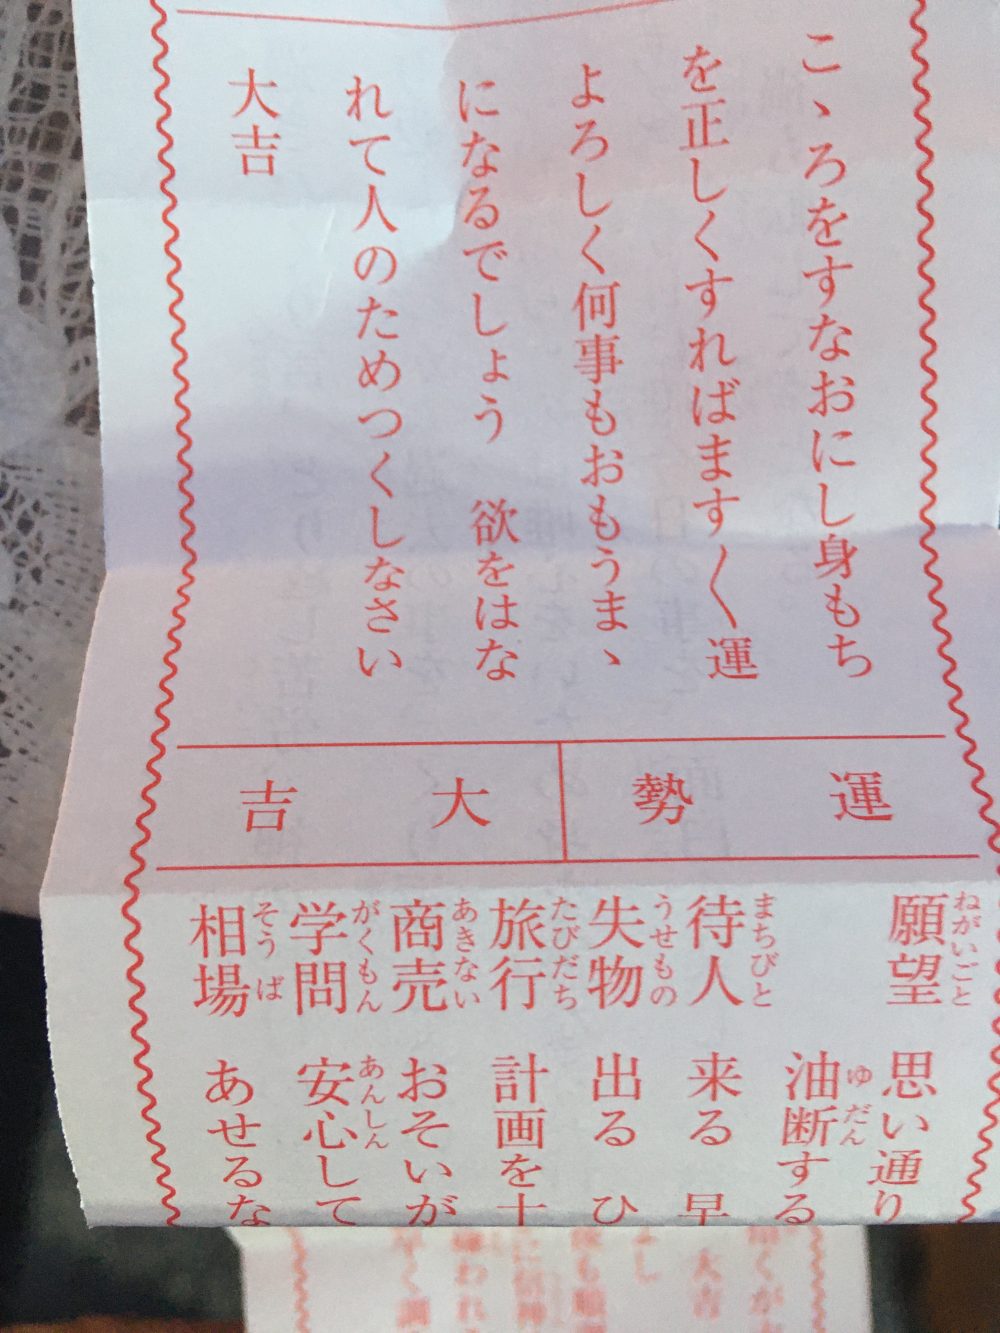 こゝろをすなおにし身もち
を正しくすればます〱運
よろしく何事もおもうまゝ
になるでしょう　欲をはな
れて人のためつくしなさい
大吉
運勢　大吉
願望　思い通り
油断する
待人　来る　早
失物　出る　ひ
旅行　計画を十
商売　おそいが
学問　安心して
相場　あせるな
ねがいごと
ゆだん
まちびと
うせもの
たびだち
あきない
がくもん
あんしん
そうば